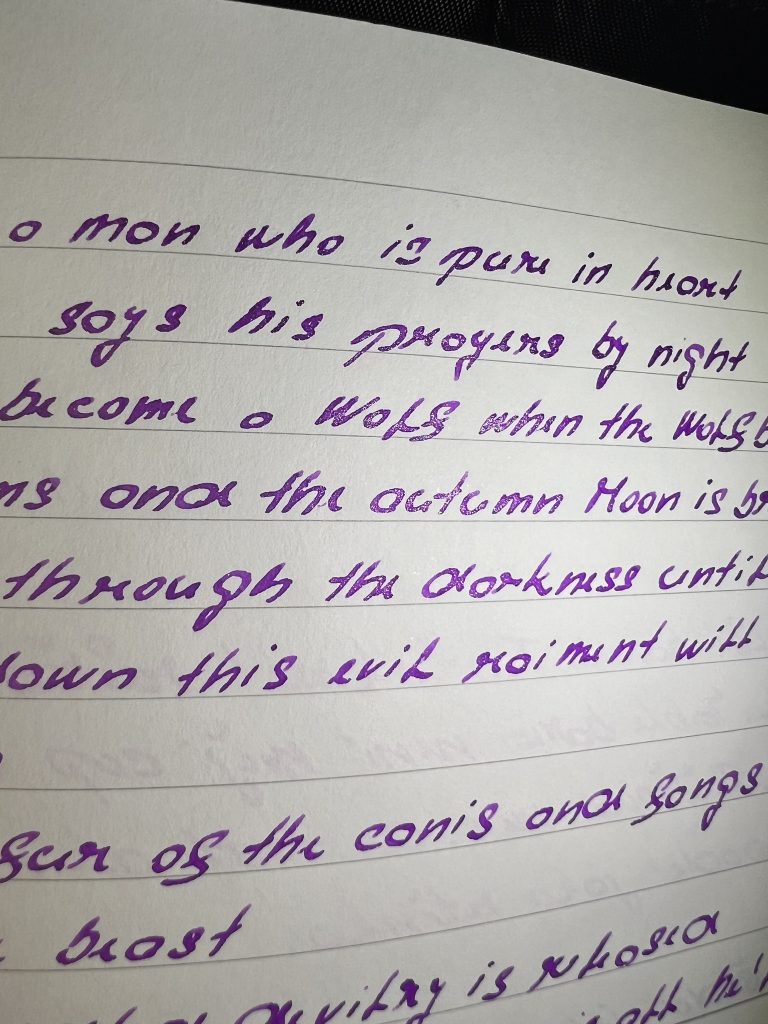 a man who is pure in heart
says his prayers by night
become a Wolf when the Wolfb
ms and the autumn Moon is br
through the darkness until
down this evil raiment will
fur of the canis and fangs
beast
devilry is released
all he'l